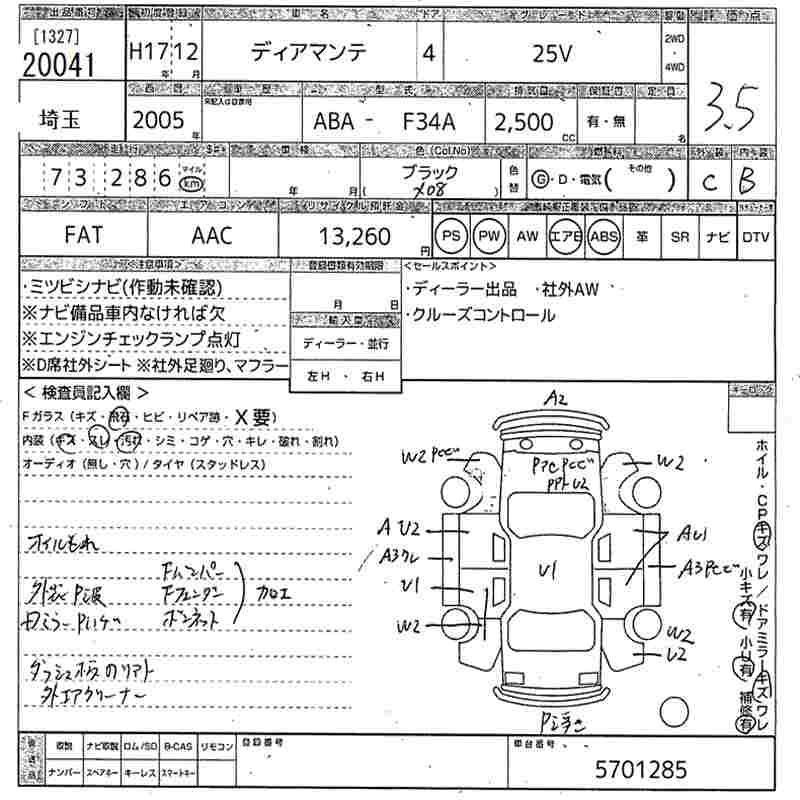 出品番号 初度登録年 車名 ドア グレード 駆動 評価点
[1327]
20041 H17年 12月 ディアマンテ 4 25V 2WD 4WD 3.5
西暦 車歴 型式 排気量 保証書 定員
埼玉 2005年 未記入は自家用 ABA - F34A 2,500cc 有・無 名
走行 車検 色(Col.No) 色替 燃料 外装 内装
73,286 マイル km 年 月 ブラック ( X08 ) G・D・電気( その他 ) C B
シフト エアコン リサイクル預託金
FAT AAC 13,260円 PS PW AW エアB ABS 革 SR ナビ DTV
<注意事項> 登録書類有効期限 <セールスポイント>
・ミツビシナビ(作動未確認) 月 日 ・ディーラー出品 ・社外AW
※ナビ備品車内なければ欠 輸入車 ・クルーズコントロール
※エンジンチェックランプ点灯 ディーラー・並行
※D席社外シート ※社外足廻り、マフラー 左H ・ 右H
<検査員記入欄>
Fガラス(キズ・飛石・ヒビ・リペア跡・X要)
内装(キズ・スレ・汚れ・シミ・コゲ・穴・キレ・破れ・割れ)
オーディオ(無し・穴)/タイヤ(スタッドレス)
オイルもれ
外装P波 Fバンパー Fフェンダー ボンネット 加工
ドアミラーPハゲ
ダッシュボードのリフト
外エアクリーナー
A2
W2 Pとび W2
PアセPとび
PPト U2
A U2 AU1
A3ワレ U1 A3Pとび
U1
W2 W2
U2
P浮き
キーロック
ホイル・CPキズワレ/ドアミラーキズワレ
小キズ有 小U有 補修有
後送品 取説 ナビ取説 ロム/SD B-CAS リモコン 登録番号 車台番号
ナンバー スペアキー キーレス スマートキー 5701285